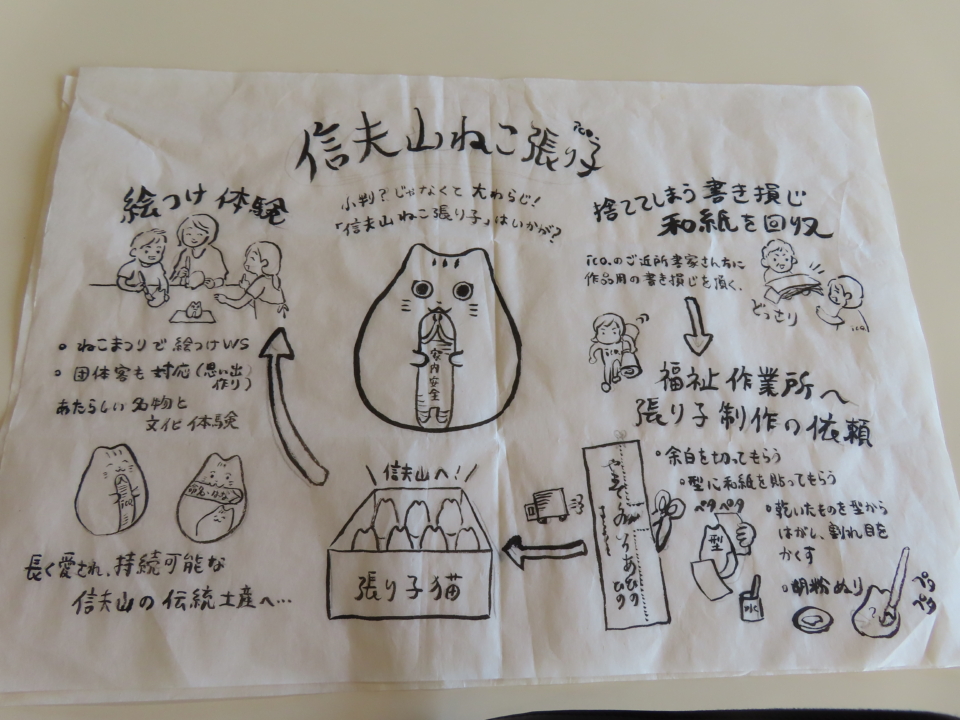 信夫山ねこ張り子
ico.
小判?じゃなくて大わらじ!
「信夫山ねこ張り子」はいかが?
家内安全
絵つけ体験
ねこまつりで絵つけWS
団体客も対応(思い出作り)
あたらしい名物と
文化体験
長く愛され、持続可能な
信夫山の伝統土産へ…
捨ててしまう書き損じ
和紙を回収
ico.のご近所書家さん方に
作品用の書き損じを頂く、
どっさり
ico
福祉作業所へ
張り子制作の依頼
・余白を切ってもらう
・型に和紙を貼ってもらう
ペタペタ
型
・乾いたものを型から
はがし、割れ目を
かくす
・胡粉ぬり
信夫山へ!
張り子猫